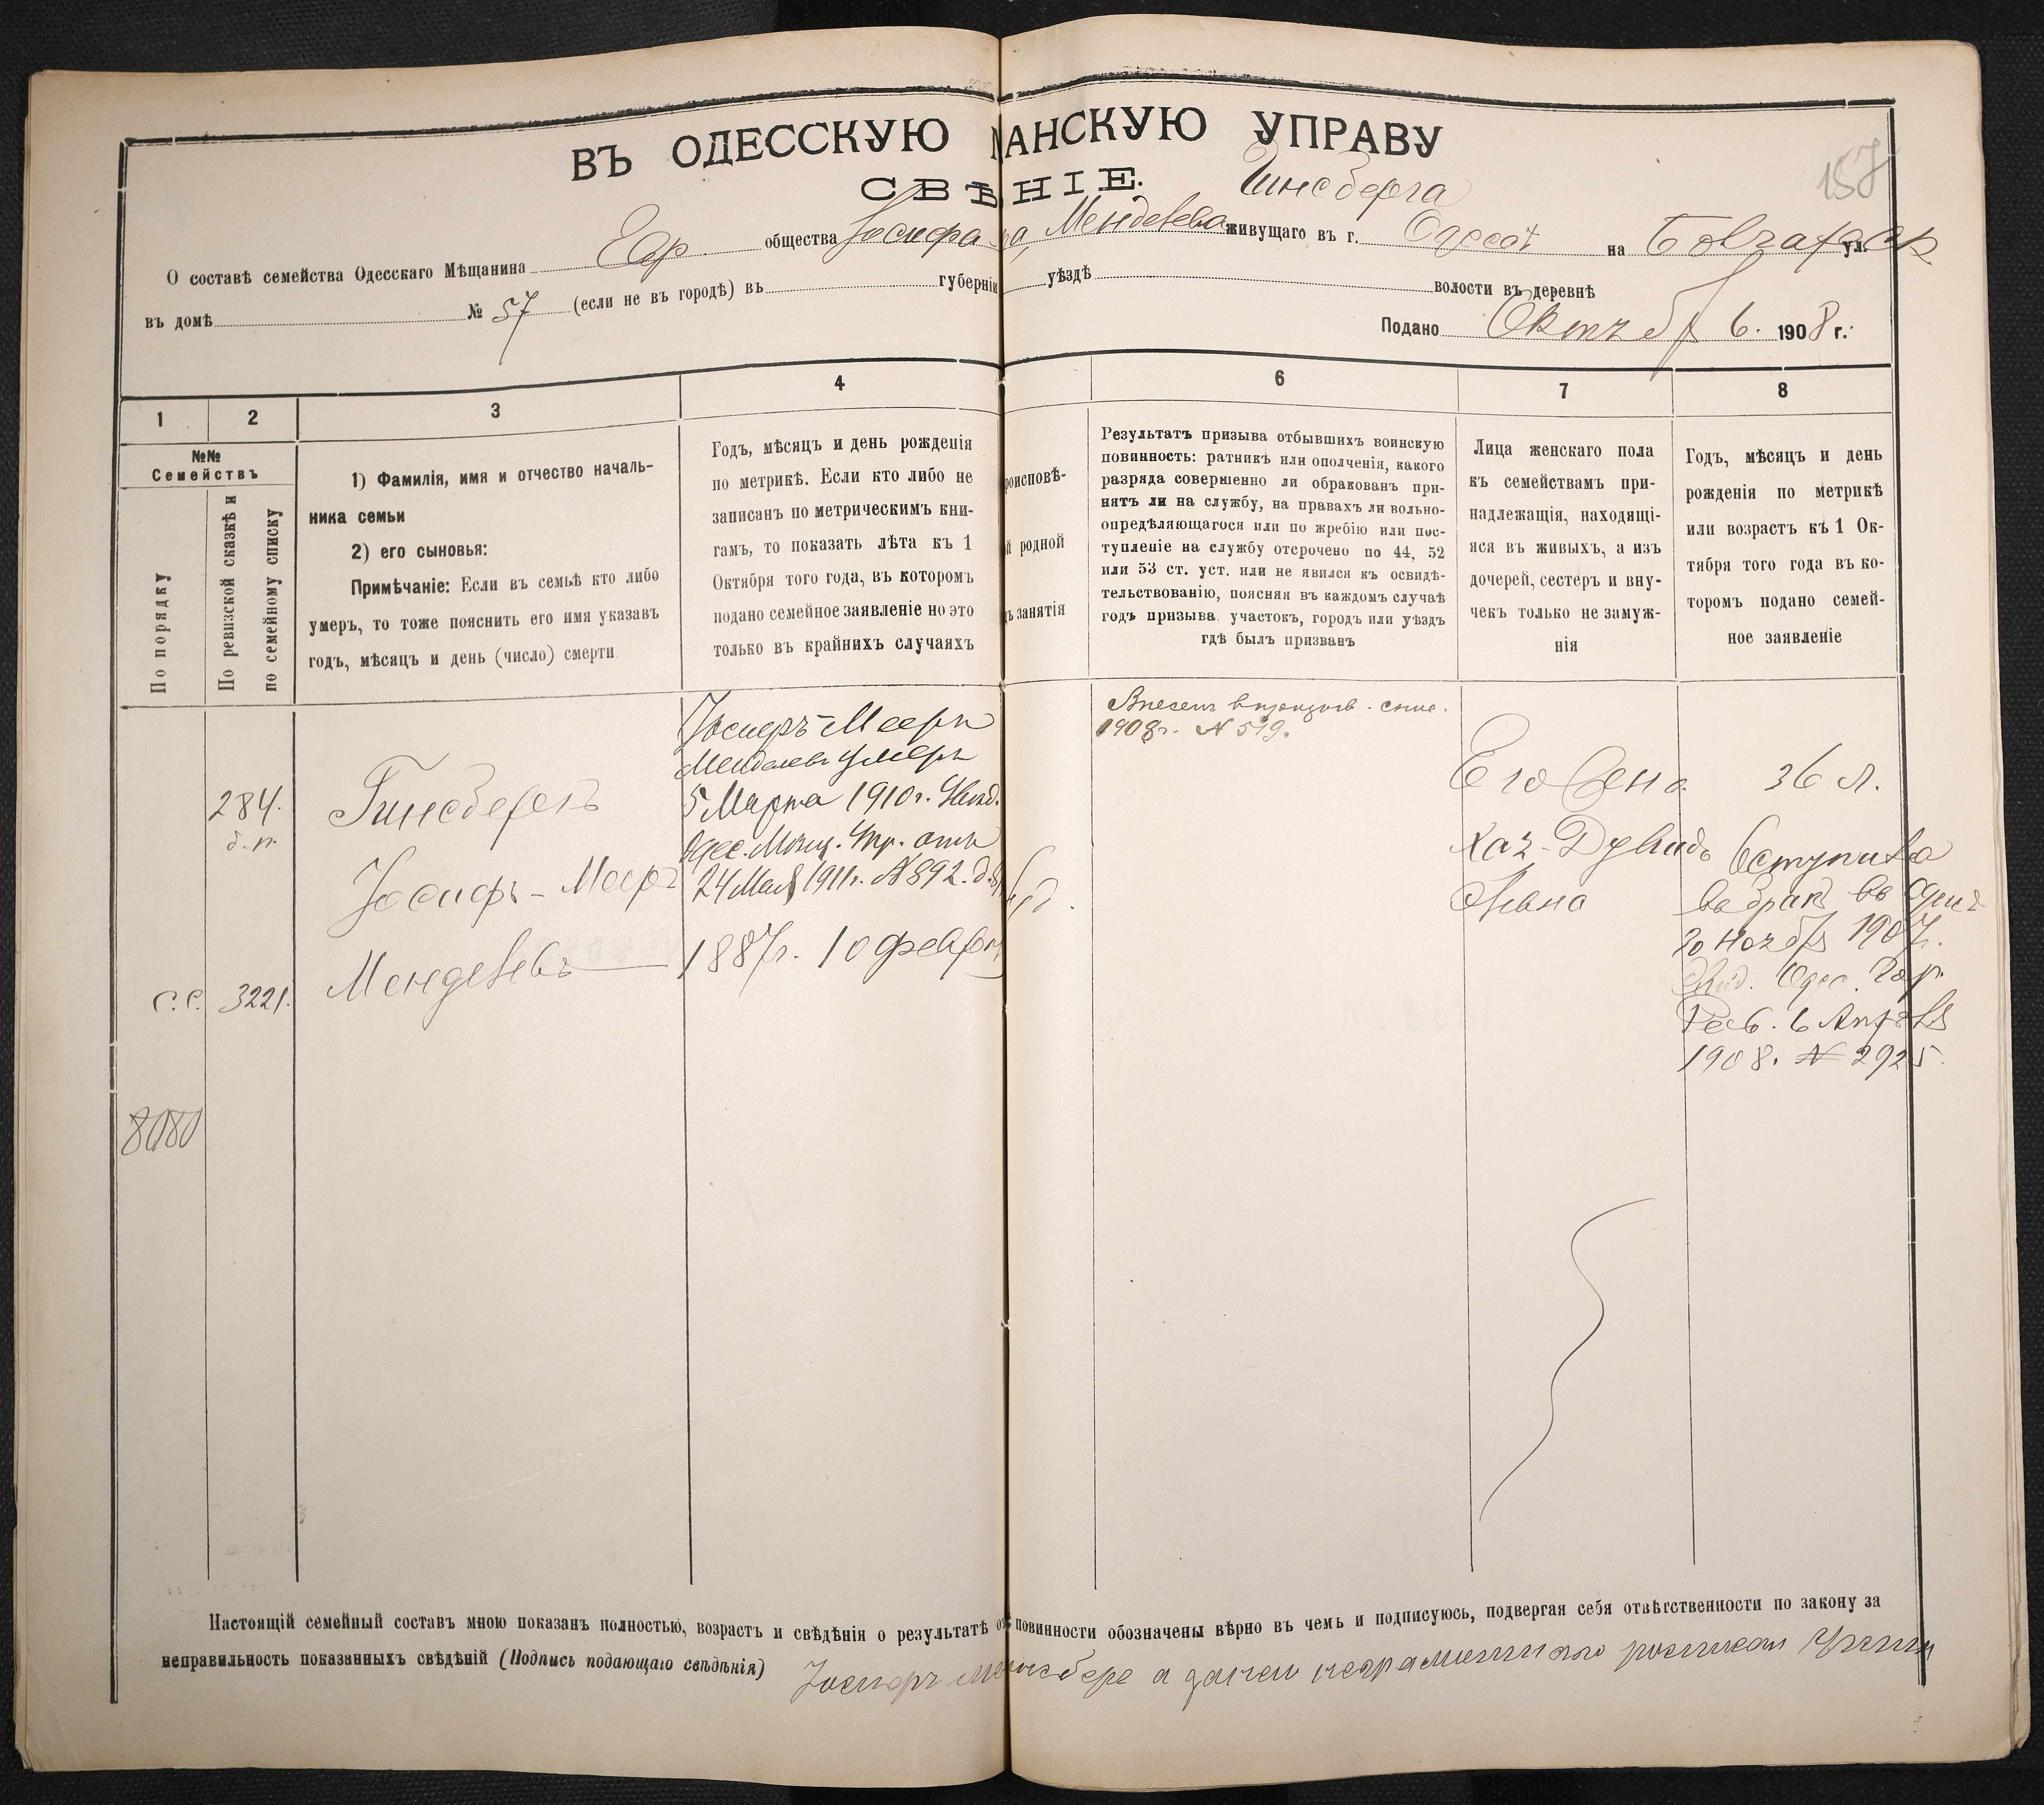 ВЪ ОДЕССКУЮ АНСКУЮ УПРАВУ
СВѢНІЕ.
157
Гинсберга
О составѣ семейства Одесскаго Мѣщанина Евр. общества Іосифа Менделева живущаго въ г. Одессѣ на ул.
въ домѣ № 57 (если не въ городѣ) въ губерніи уѣздѣ волости въ деревнѣ
Подано Октяб 6. 1908 г.
1 2 3 4 6 7 8
№№
Семействъ
По порядку
По ревизской сказкѣ и
по семейному списку
1) Фамилія, имя и отчество началь-
ника семьи
2) его сыновья:
Примѣчаніе: Если въ семьѣ кто либо
умеръ, то тоже пояснить его имя указавъ
годъ, мѣсяцъ и день (число) смерти
Годъ, мѣсяцъ и день рожденія
по метрикѣ. Если кто либо не
записанъ по метрическимъ кни-
гамъ, то показать лѣта къ 1
Октября того года, въ которомъ
подано семейное заявленіе но это
только въ крайнихъ случаяхъ
роисповѣ-
й родной
ъ занятія
Результатъ призыва отбывшихъ воинскую
повинность: ратникъ или ополченія, какого
разряда совершенно ли обракованъ при-
нятъ ли на службу, на правахъ ли вольно-
опредѣляющагося или по жребію или пос-
тупленіе на службу отсрочено по 44, 52
или 53 ст. уст. или не явился къ освидѣ-
тельствованію, поясняя въ каждомъ случаѣ
годъ призыва участокъ, городъ или уѣздъ
гдѣ былъ призванъ
Лица женскаго пола
къ семействамъ при-
надлежащія, находящі-
яся въ живыхъ, а изъ
дочерей, сестеръ и вну-
чекъ только не замуж-
нія
Годъ, мѣсяцъ и день
рожденія по метрикѣ
или возрастъ къ 1 Ок-
тября того года въ ко-
торомъ подано семей-
ное заявленіе
284.
б. п.
с.с. 3221.
8080
Гинсбергъ
Іосифъ-Мееръ
Менделевъ
Іосифъ-Мееръ
Менделевъ умеръ
5 Марта 1910 г.
Одес. Мѣщ. Упр. отъ
24 Мая 1911 г. № 892.
1887 г. 10 февр
1908 г. № 519.
Его жена
Хая-
36 л.
Вступила
въ бракъ въ Одессѣ
20 Ноября 1907.
Свид. Одес. Гор.
Рав. 6 Апрѣля
1908. № 2925.
Настоящій семейный составъ мною показанъ полностью, возрастъ и свѣдѣнія о результатѣ о повинности обозначены вѣрно въ чемъ и подписуюсь, подвергая себя отвѣтственности по закону за
неправильность показанныхъ свѣдѣній (Подпись подающаго свѣдѣнія) Іосифъ